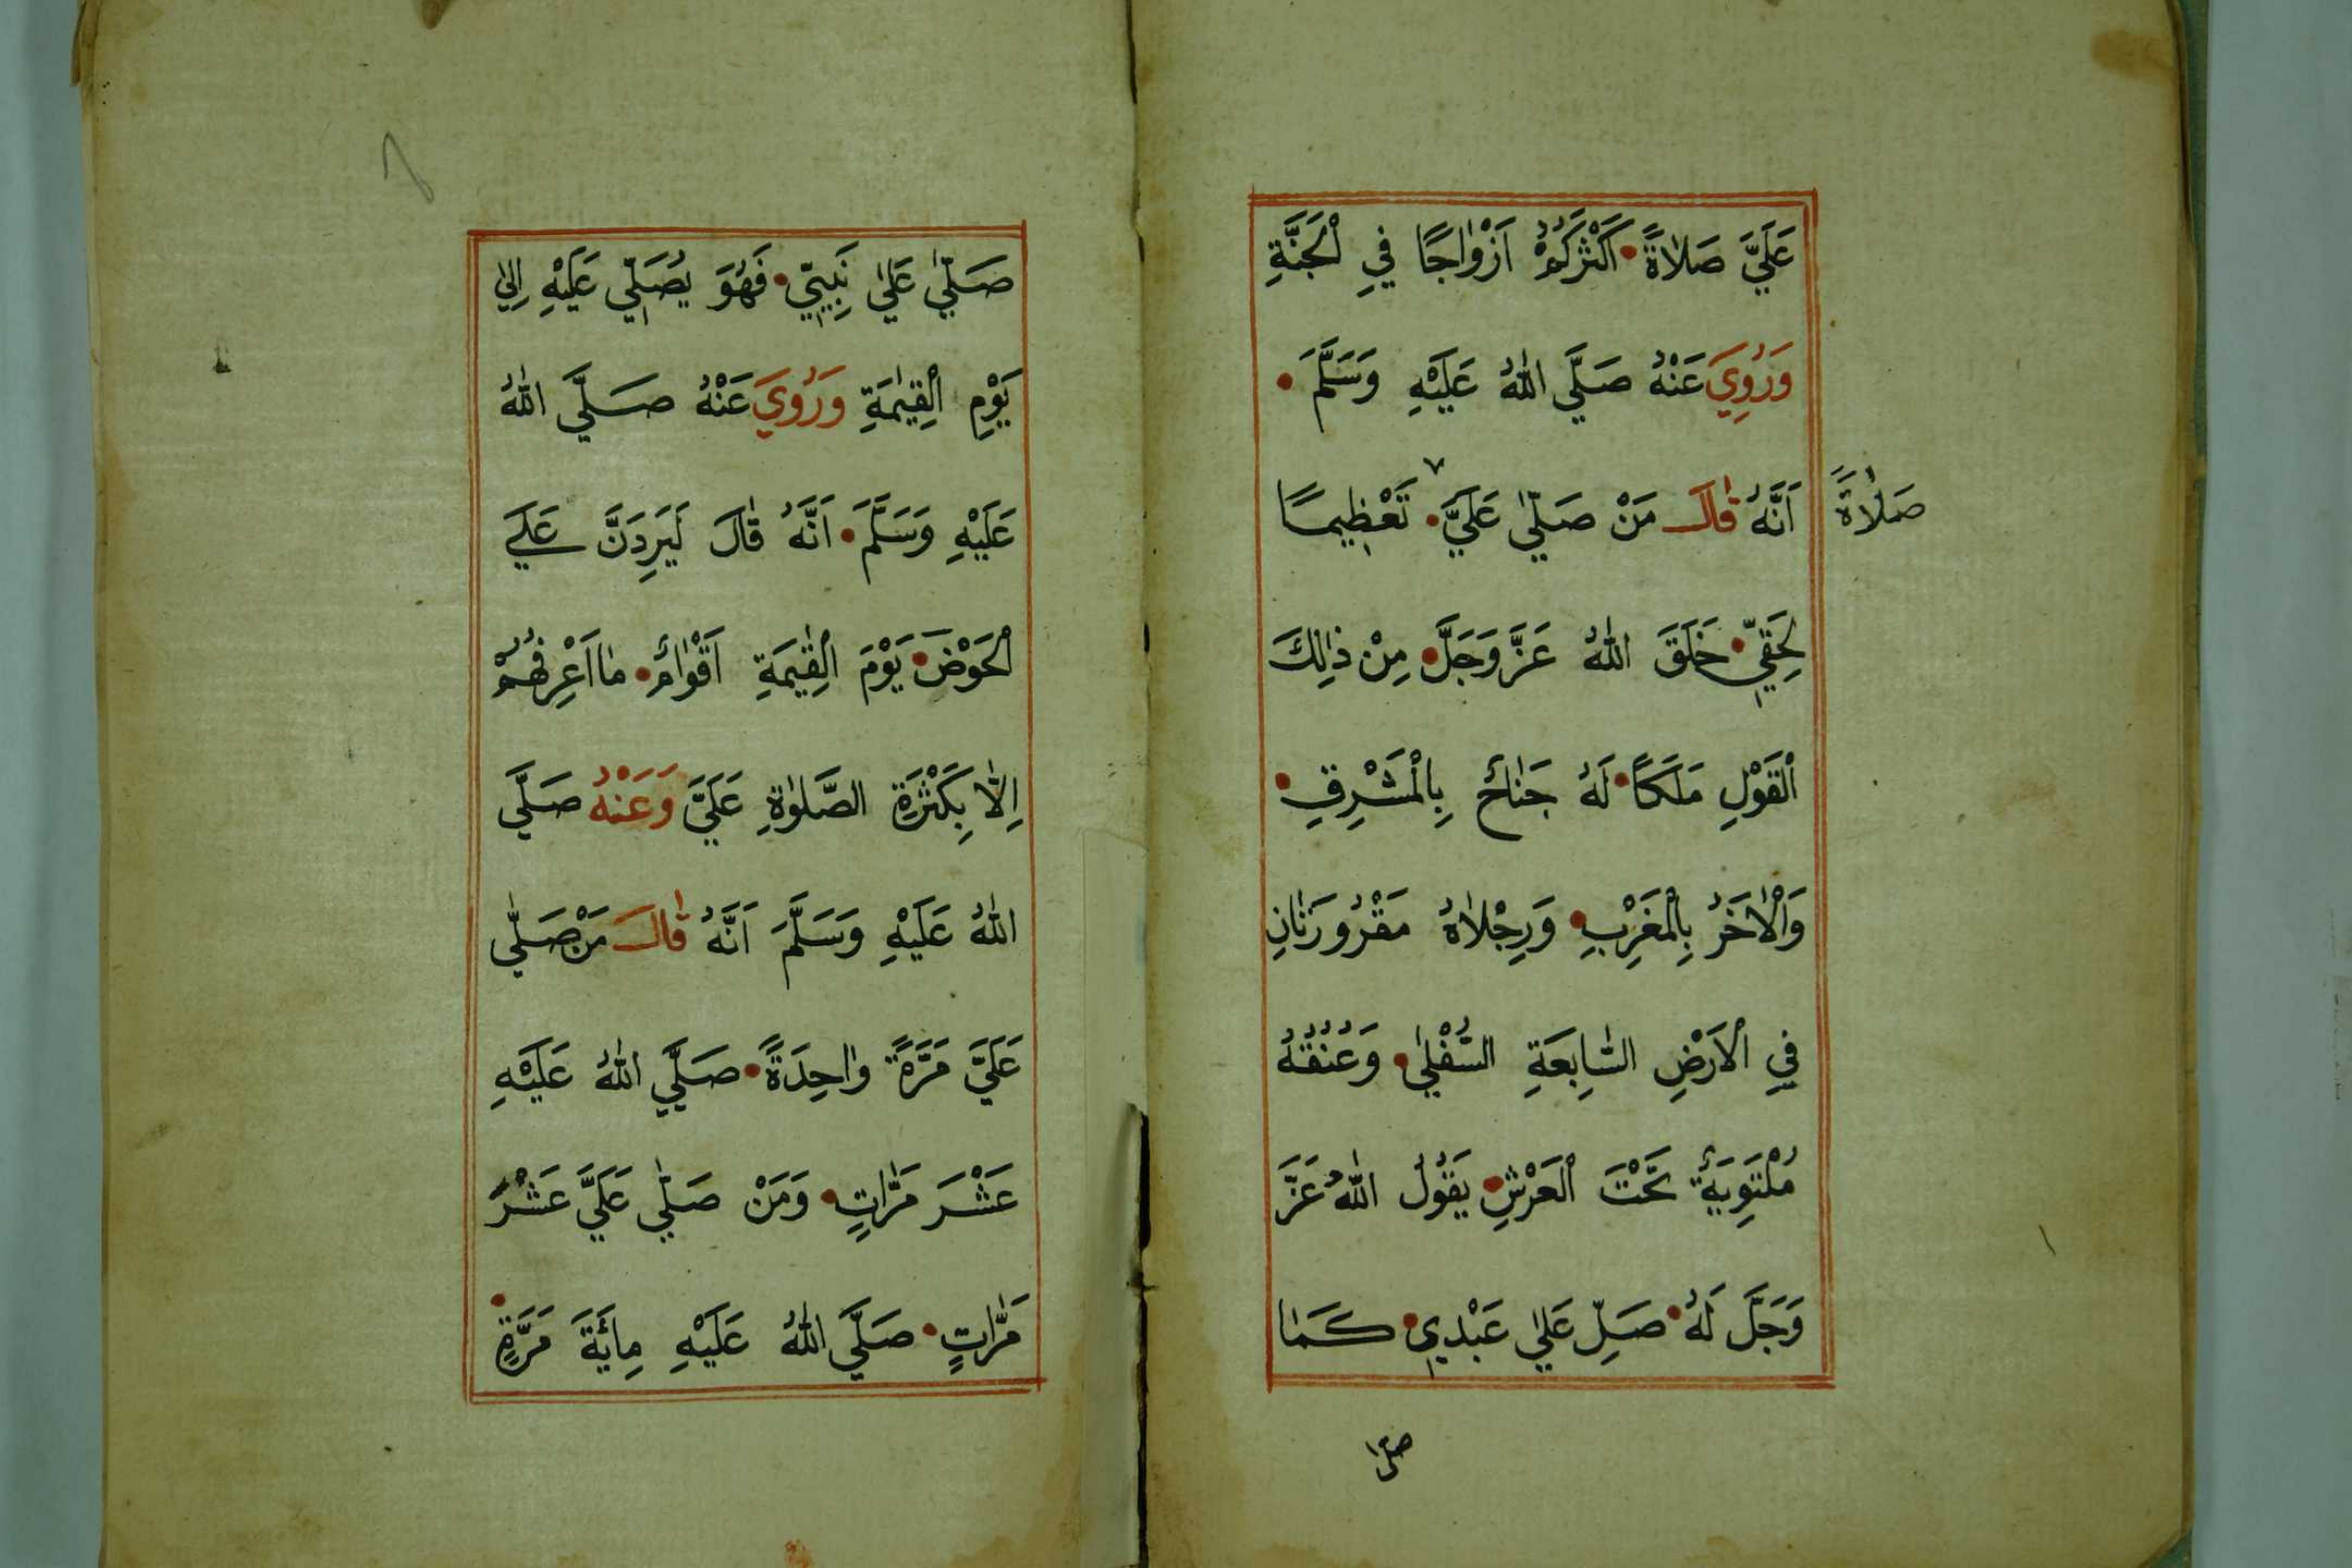 عَلَيَّ صَلَاةً • اَكْثَرُكُمْ اَزْوَاجًا فِي الْجَنَّةِ
وَرُوِيَ عَنْهُ صَلَّي اللّٰهُ عَلَيْهِ وَسَلَّمَ •
اَنَّهُ قَالَ مَنْ صَلّٰي عَلَيَّ • تَعْظِيمًا
صَلَاةً
لِحَقِّي • خَلَقَ اللّٰهُ عَزَّ وَجَلَّ • مِنْ ذٰلِكَ
الْقَوْلِ مَلَكًا • لَهُ جَنَاحٌ بِالْمَشْرِقِ •
وَالْاٰخَرُ بِالْمَغْرِبِ • وَرِجْلَاهُ مَقْرُورَتَانِ
فِي الْاَرْضِ السَّابِعَةِ السُّفْلٰي • وَعُنُقُهُ
مُلْتَوِيَةٌ تَحْتَ الْعَرْشِ • يَقُولُ اللّٰهُ عَزَّ
وَجَلَّ لَهُ • صَلِّ عَلٰي عَبْدِي • كَمَا
صلّٰي
صَلّٰي عَلٰي نَبِيِّي • فَهُوَ يُصَلِّي عَلَيْهِ اِلٰي
يَوْمِ الْقِيٰمَةِ وَرُوِيَ عَنْهُ صَلَّي اللّٰهُ
عَلَيْهِ وَسَلَّمَ • اَنَّهُ قَالَ لَيَرِدَنَّ عَلَي
الْحَوْضَ • يَوْمَ الْقِيٰمَةِ اَقْوَامٌ • مَا اَعْرِفُهُمْ
اِلَّا بِكَثْرَةِ الصَّلٰوةِ عَلَيَّ وَعَنْهُ صَلَّي
اللّٰهُ عَلَيْهِ وَسَلَّمَ اَنَّهُ قَالَ مَنْ صَلّٰي
عَلَيَّ مَرَّةً وَاحِدَةً • صَلَّي اللّٰهُ عَلَيْهِ
عَشْرَ مَرَّاتٍ • وَمَنْ صَلّٰي عَلَيَّ عَشْرَ
مَرَّاتٍ • صَلَّي اللّٰهُ عَلَيْهِ مِائَةَ مَرَّةٍ •